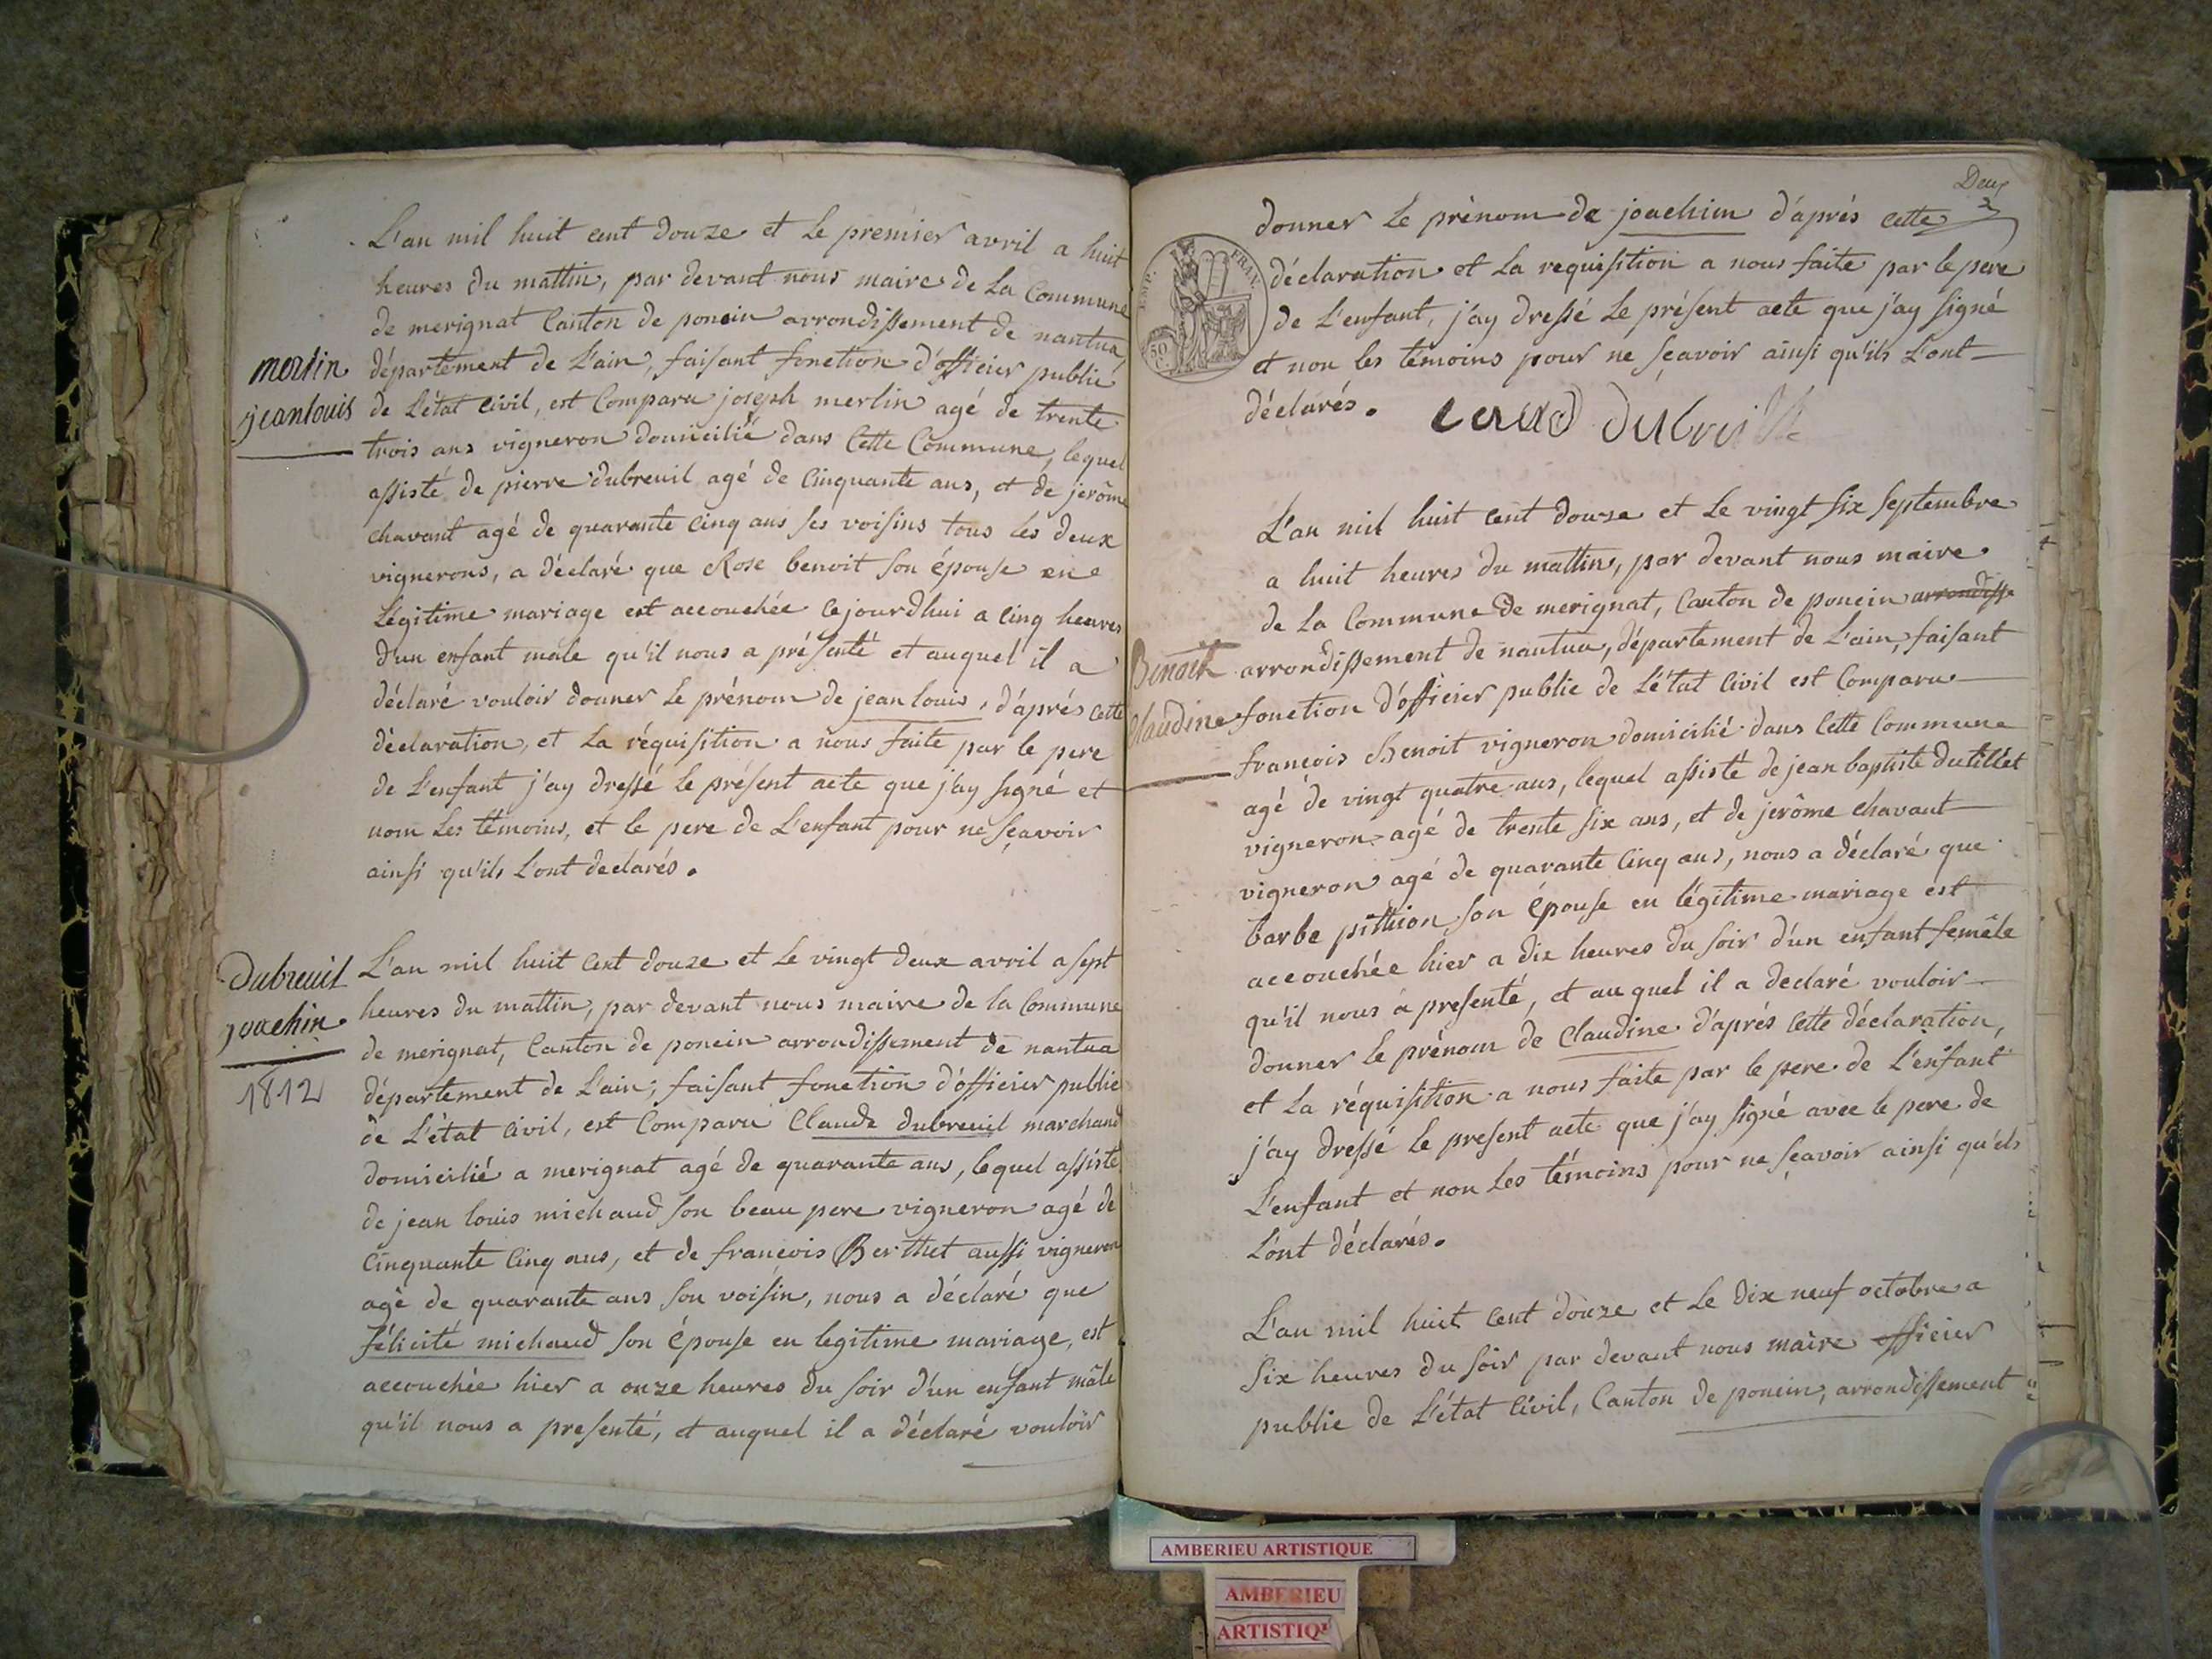 L'an mil huit cent douze et le premier avril a huit
heures du mattin, par devant nous maire de la Commune
de merignat Canton de poncin arrondissement de nantua
merlin
département de l'ain, faisant fonction d'officier public
jeanlouis
de l'état civil, est Comparu joseph merlin agé de trente
trois ans vigneron domicilié dans Cette Commune, lequel
assisté de pierre dubreuil agé de Cinquante ans, et de jerôme
chavant agé de quarante cinq ans ses voisins tous les deux
vignerons, a déclaré que Rose benoit son épouse en
légitime mariage est accouchée cejourdhui a cinq heures
d'un enfant mâle qu'il nous a présenté et auquel il a
déclaré vouloir donner le prénom de jean louis, d'aprés cette
déclaration, et la réquisition a nous faite par le pere
de l'enfant j'ay dressé le présent acte que j'ay signé et
nom les témoins, et le pere de l'enfant pour ne sçavoir
ainsi qu'ils l'ont declarés.
Dubreuil
joachin
1812
L'an mil huit Cent douze et le vingt deux avril a sept
heures du mattin, par devant nous maire de la Commune
de merignat, Canton de poncin arrondissement de nantua
département de l'ain, faisant fonction d'officier public
de l'état civil, est Comparu Claude dubreuil marchand
domicilié a merignat agé de quarante ans, lequel assisté
de jean louis michaud son beau pere vigneron agé de
Cinquante Cinq ans, et de francois Berthet aussi vigneron
agé de quarante ans son voisin, nous a déclaré que
félicité michaud son épouse en legitime mariage, est
accouchée hier a onze heures du soir d'un enfant mâle
qu'il nous a presenté, et auquel il a déclaré vouloir
Deux
2
donner le prénom de joachim d'aprés cette
EMP. FRAN.
50 C.
déclaration et la requisition a nous faite par le pere
de l'enfant, j'ay dressé le présent acte que j'ay signé
et non les témoins pour ne sçavoir ainsi qu'ils l'ont
déclarés.
L'an mil huit cent douze et le vingt six septembre
a huit heures du mattin, par devant nous maire
de la Commune de merignat, Canton de poncin arrondisse
Benoit
arrondissement de nantua, département de l'ain, faisant
Claudine
fonction d'officier public de l'état Civil est Comparu
francois Benoit vigneron domicilié dans Cette Commune
agé de vingt quatre ans, lequel assisté de jean baptiste dutillet
vigneron agé de trente six ans, et de jerôme chavant
vigneron agé de quarante Cinq ans, nous a déclaré que
barbe pithion son épouse en légitime mariage est
accouchée hier a dix heures du soir d'un enfant femêle
qu'il nous a presenté, et auquel il a declaré vouloir
donner le prénom de Claudine d'aprés cette déclaration,
et la réquisition a nous faite par le pere de l'enfant
j'ay dressé le present acte que j'ay signé avec le pere de
l'enfant et non les témoins pour ne sçavoir ainsi qu'ils
l'ont déclarés.
L'an mil huit Cent douze et le dix neuf octobre a
six heures du soir par devant nous maire officier
public de l'état Civil, Canton de poncin, arrondissement
AMBERIEU ARTISTIQUE
AMBERIEU
ARTISTIQU